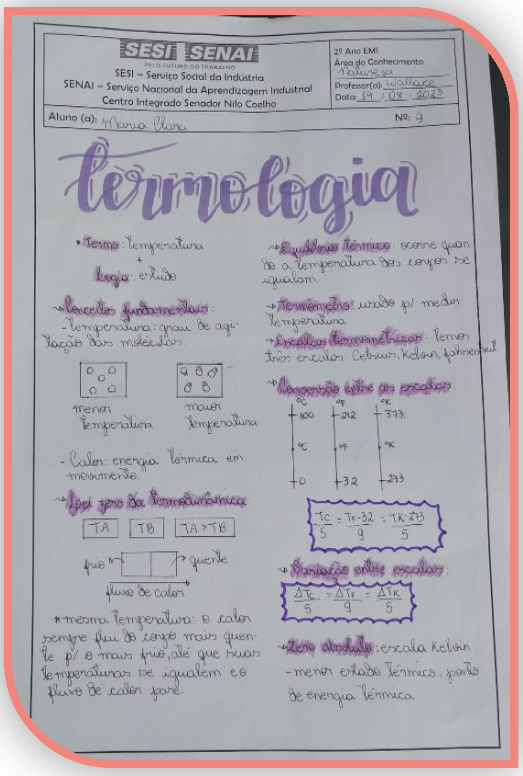 SESI SENAI
PELO FUTURO DO TRABALHO
SESI – Serviço Social da Indústria
SENAI – Serviço Nacional da Aprendizagem Industrial
Centro Integrado Senador Nilo Coelho
2º Ano EMI
Área do Conhecimento:
Natureza
Professor(a): Wallace
Data: 14 / 08 / 2023
Aluno (a): Maria Clara
Nº: 9
Termologia
* Termo: temperatura
+
Logia: estudo
Conceitos fundamentais:
- Temperatura: grau de agi-
tação das moléculas.
menor
temperatura
maior
temperatura
- Calor: energia térmica em
movimento.
Lei zero da termodinâmica
TA
TB
TA > TB
frio
quente
fluxo de calor
* mesma temperatura: o calor
sempre flui do corpo mais quen-
te p/ o mais frio, até que suas
temperaturas se igualem e o
fluxo de calor pare.
Equilíbrio térmico: ocorre quan
do a temperatura dos corpos se
igualam.
Termômetro: usado p/ medir
temperatura
Escalas termométricas: temos
três escalas: Celsius, Kelvin, fahrenheit
Conversão entre as escalas:
°C °F °K
100 212 373
°C °F °K
0 32 273
TC/5 = TF-32/9 = TK-273/5
Variação entre escalas:
ΔTC/5 = ΔTF/9 = ΔTK/5
Zero absoluto: escala Kelvin
- menor estado térmico, ponto
de energia térmica